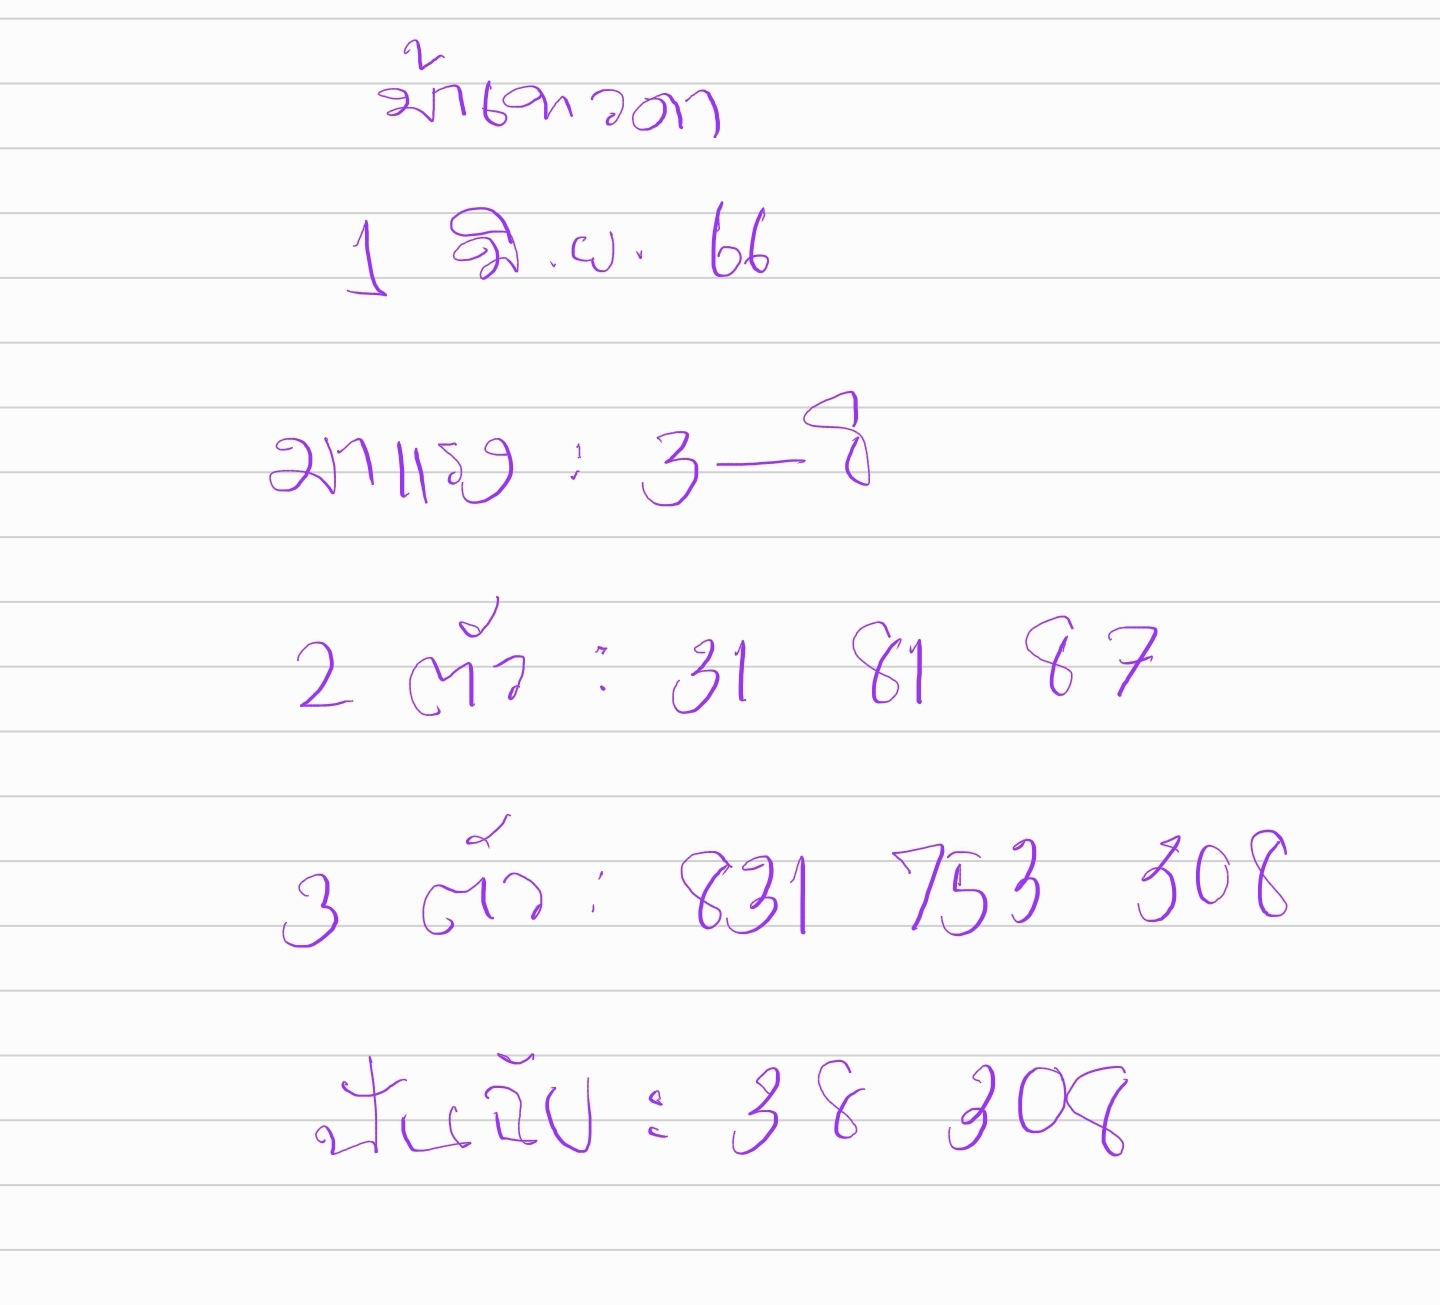 ม้าเทวดา
1 มิ.ย. 66
มาแรง : 3-8
2 ตัว : 31 81 87
3 ตัว : 831 753 308
ฟันฉับ : 38 308